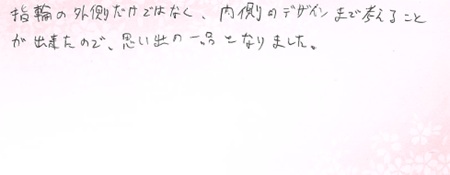 指輪の外側だけではなく、内側のデザインまで考えること
が出来たので、思い出の一品となりました。